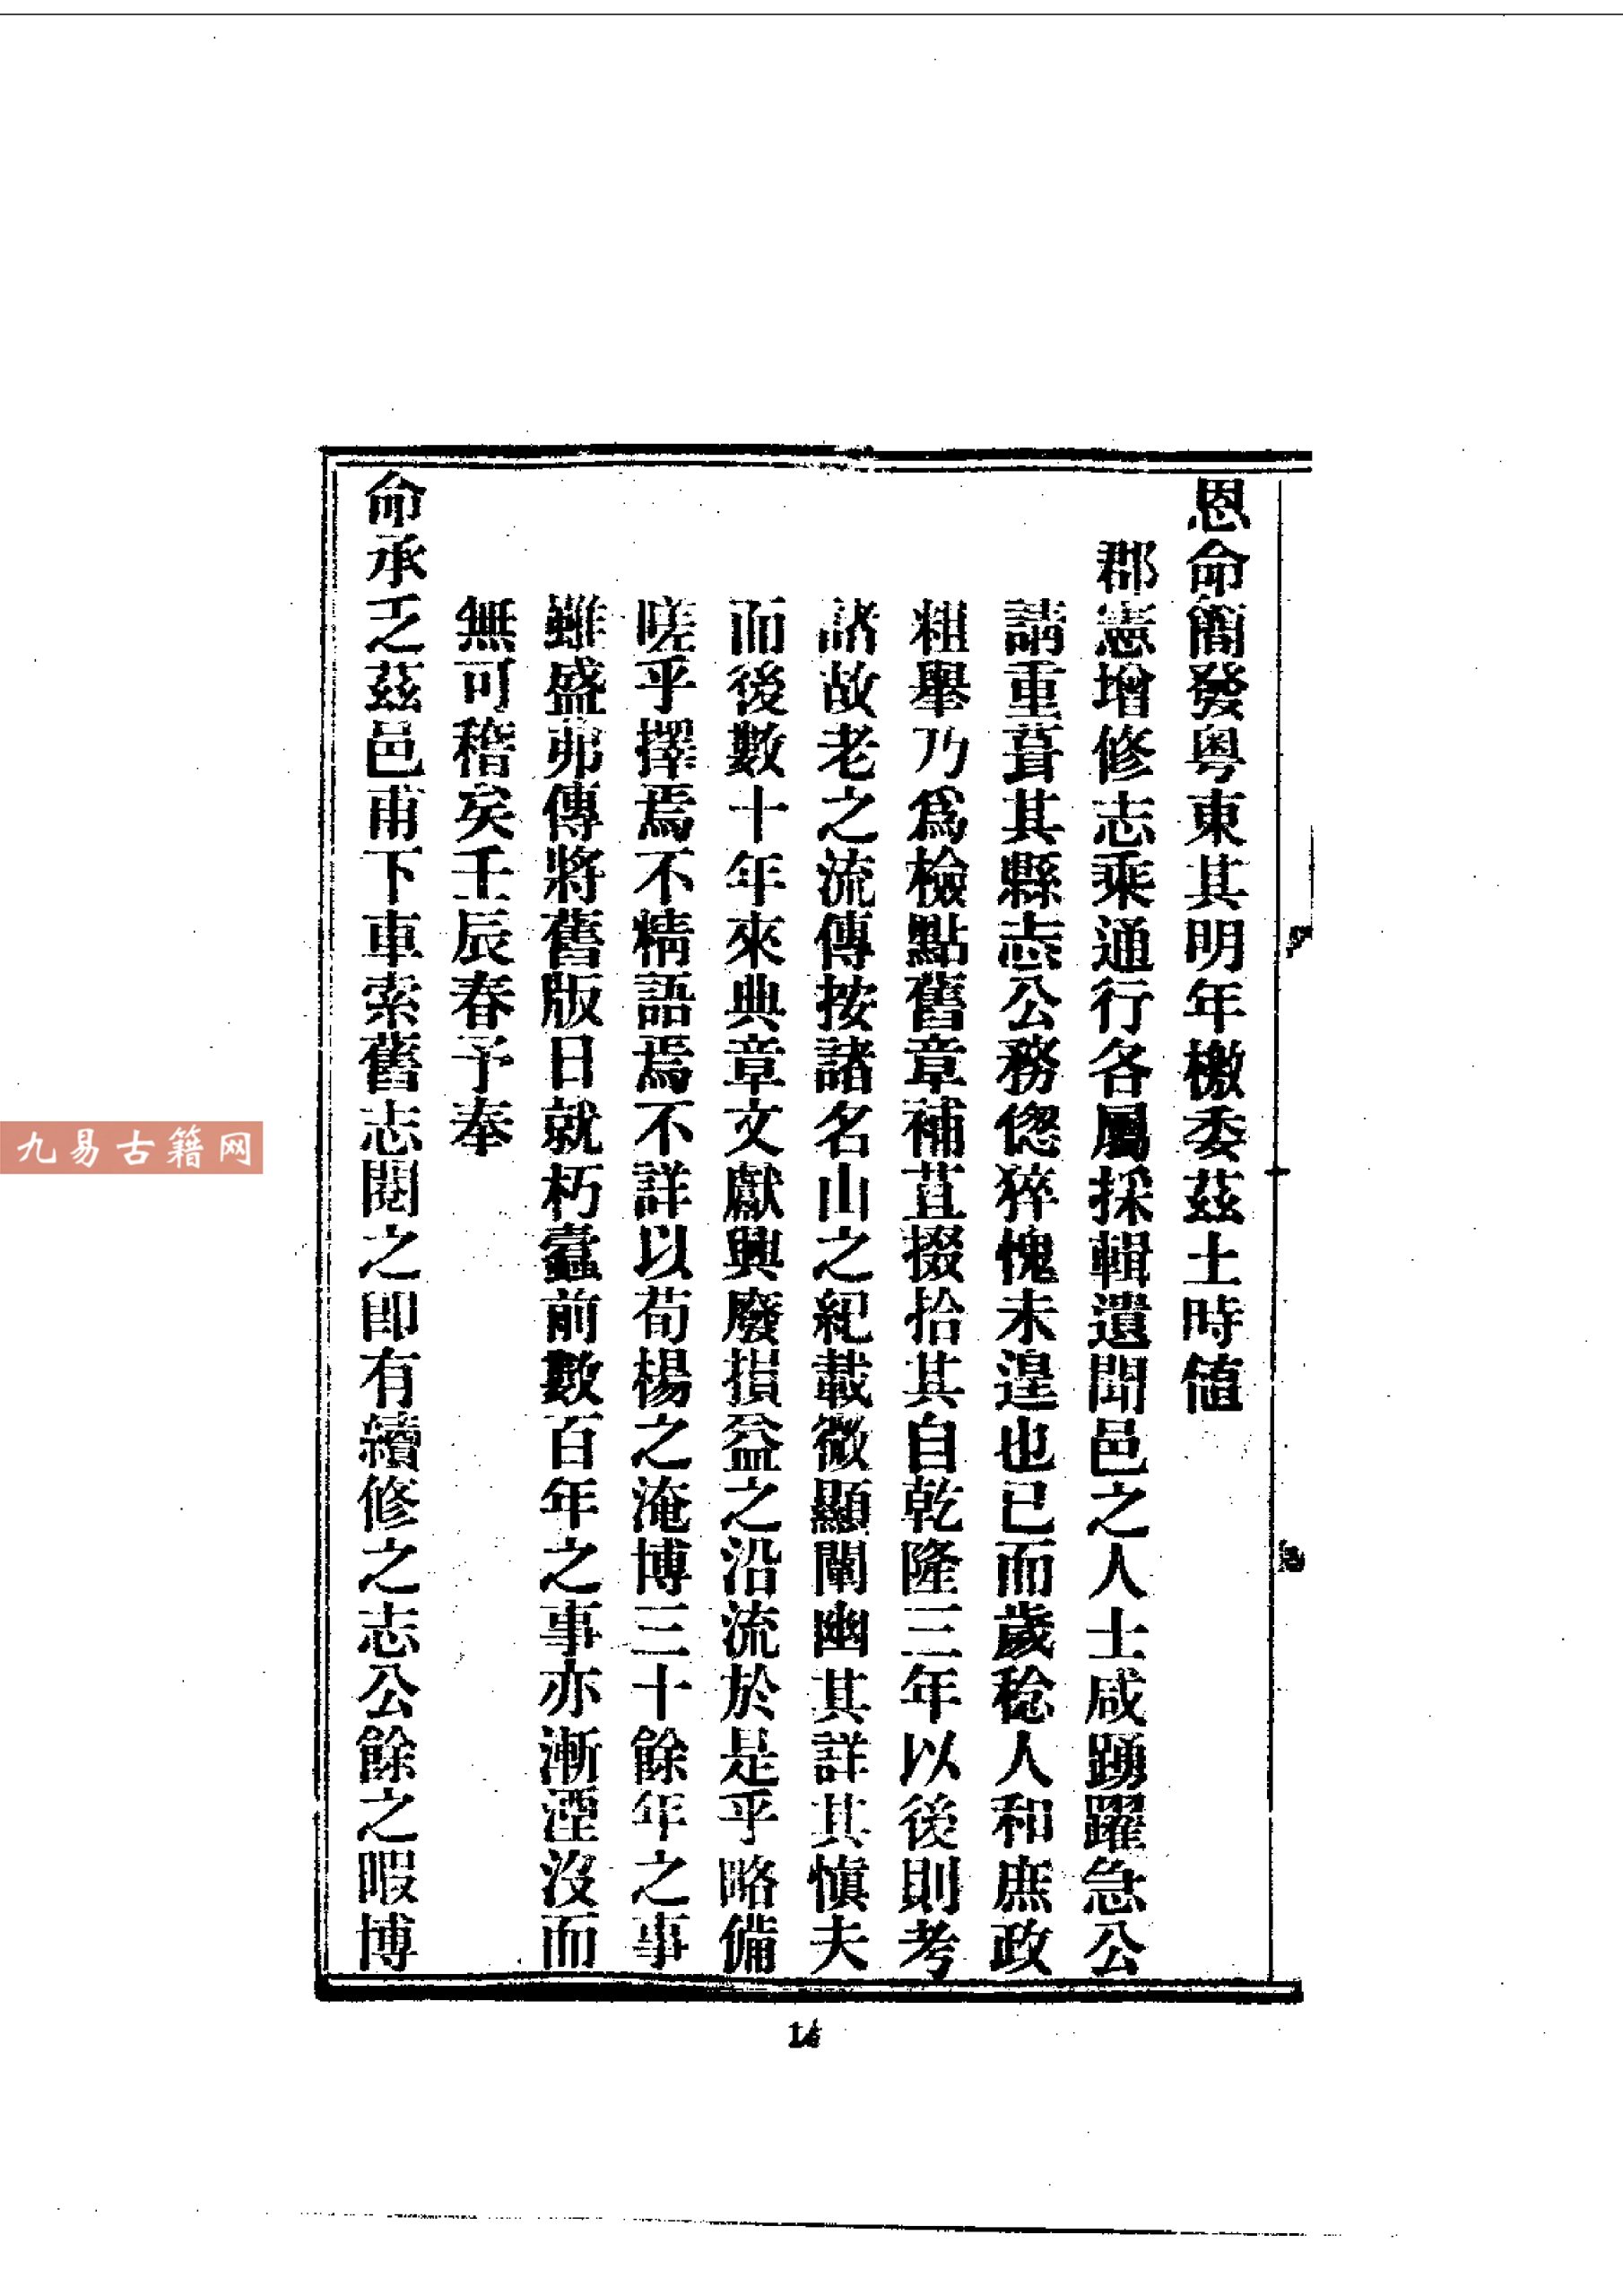 恩命簡發粤東其明年檄委茲土時值
郡憲增修志乘通行各屬採輯遺聞邑之人士咸踴躍急公
請重葺其縣志公務偬猝愧未遑也已而歲稔人和庶政
粗舉乃爲檢點舊章補苴掇拾其自乾隆三年以後則考
諸故老之流傳按諸名山之紀載微顯闡幽其詳其慎夫
而後數十年來典章文獻興廢損益之沿流於是乎略備
嗟乎擇焉不精語焉不詳以荀楊之淹博三十餘年之事
雖盛弗傳將舊版日就朽蠹前數百年之事亦漸湮沒而
無可稽矣壬辰春予奉
命承乏茲邑甫下車索舊志閱之卽有續修之志公餘之暇博
14
九易古籍网